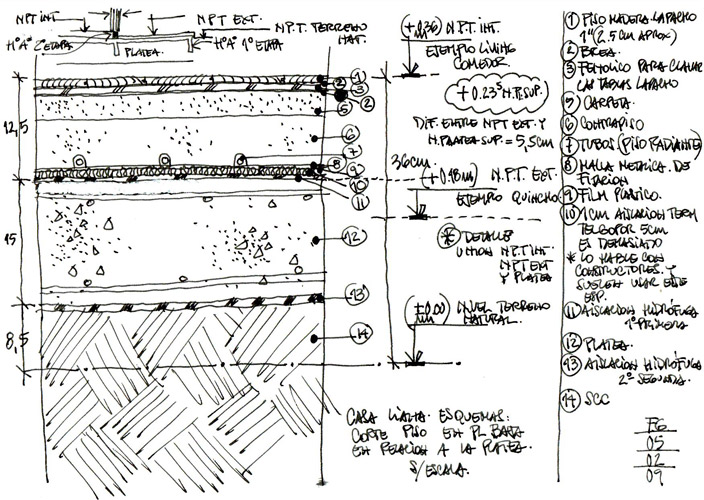 NPT INT.
NPT EXT.
N.P.T. TERRENO
NAT.
HºAº 2º ETAPA
PLATEA.
HºAº 1º ETAPA
(+0.36) N.P.T. INT.
EJEMPLO LIVING
COMEDOR.
+0.23⁵ N.P. SUP.
DIF. ENTRE NPT EXT. Y
N.PLATEA SUP. = 5,5cm
36cm.
(+0.18cm) N.P.T. EXT.
EJEMPLO QUINCHO
* DETALLE
UNION N.P.T. INT.
NPT EXT
Y PLATEA
(±0.00) NIVEL TERRENO
NATURAL.
12,5
15
8,5
1
2
3
2
5
6
7
8
9
10
11
12
13
14
CASA LIALTA. ESQUEMAS:
CORTE PISO EN PL BAJA
EN RELACION A LA PLATEA.
S/ESCALA.
1 PISO MADERA LAPACHO
1" (2.5cm APROX)
2 BREA.
3 FENOLICO PARA CLAVAR
LAS TABLAS LAPACHO
5 CARPETA.
6 CONTRAPISO
7 TUBOS (PISO RADIANTE)
8 MALLA METALICA. DE
FIJACION
9 FILM PLASTICO.
10 1CM AISLACION TERM
TELGOPOR 5cm
ES DEMASIADO
* LO HABLE CON
CONSTRUCTORES. Y
SUELEN USAR ESTE
ESP.
11 AISLACION HIDRÓFUGA
1º PRIMERA
12 PLATEA.
13 AISLACION HIDRÓFUGA
2º SEGUNDA.
14 SCC
05
02
09